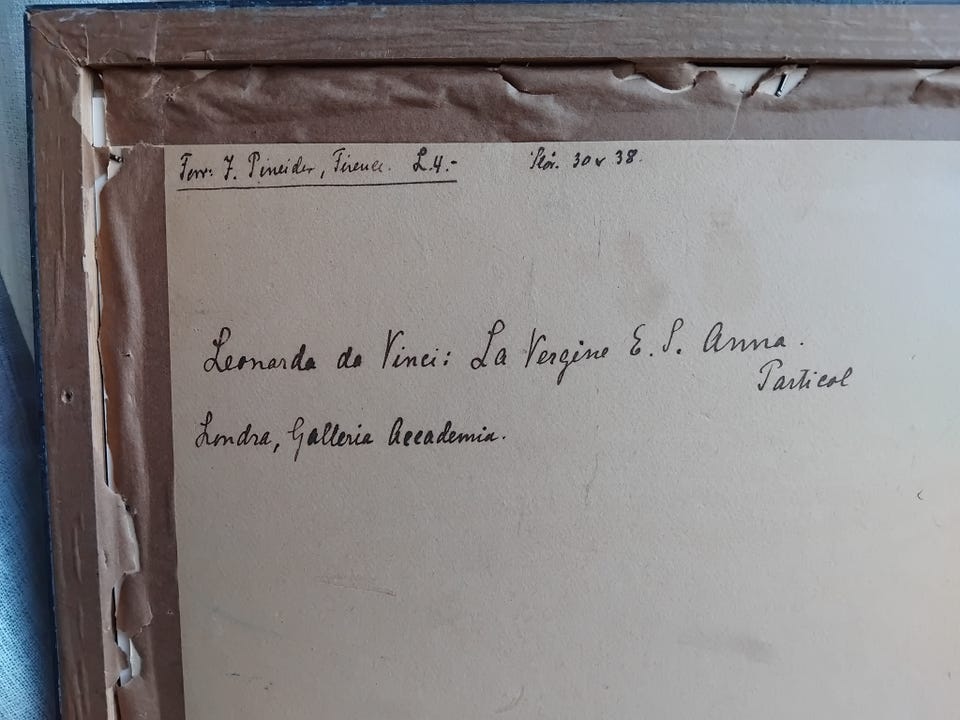 Ferr: F. Pineider, Firenze. L.4.- 30 x 38.
Leonardo da Vinci: La Vergine E. S. Anna.
Particol
Londra, Galleria Accademia.